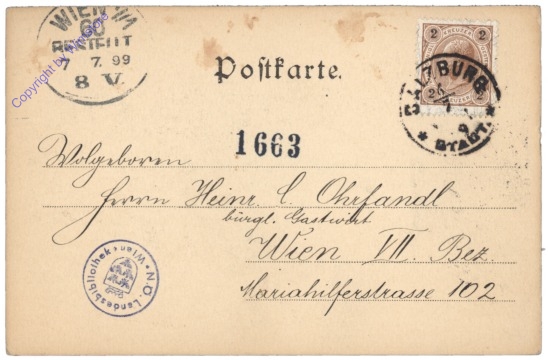 WIEN 7/1
60
BESTELLT
7 7. 99
8 V.
Copyright by
2 KREUZER 2
2 2
SALZBURG
STADT
Postkarte.
1663
Wolgeboren
Herrn Heinr. C. Ohrfandl
bürgl. Gastwirt
Wien VII. Bez.
Mariahilferstrasse 102
N.Ö. Landesbibliothek • Wien •